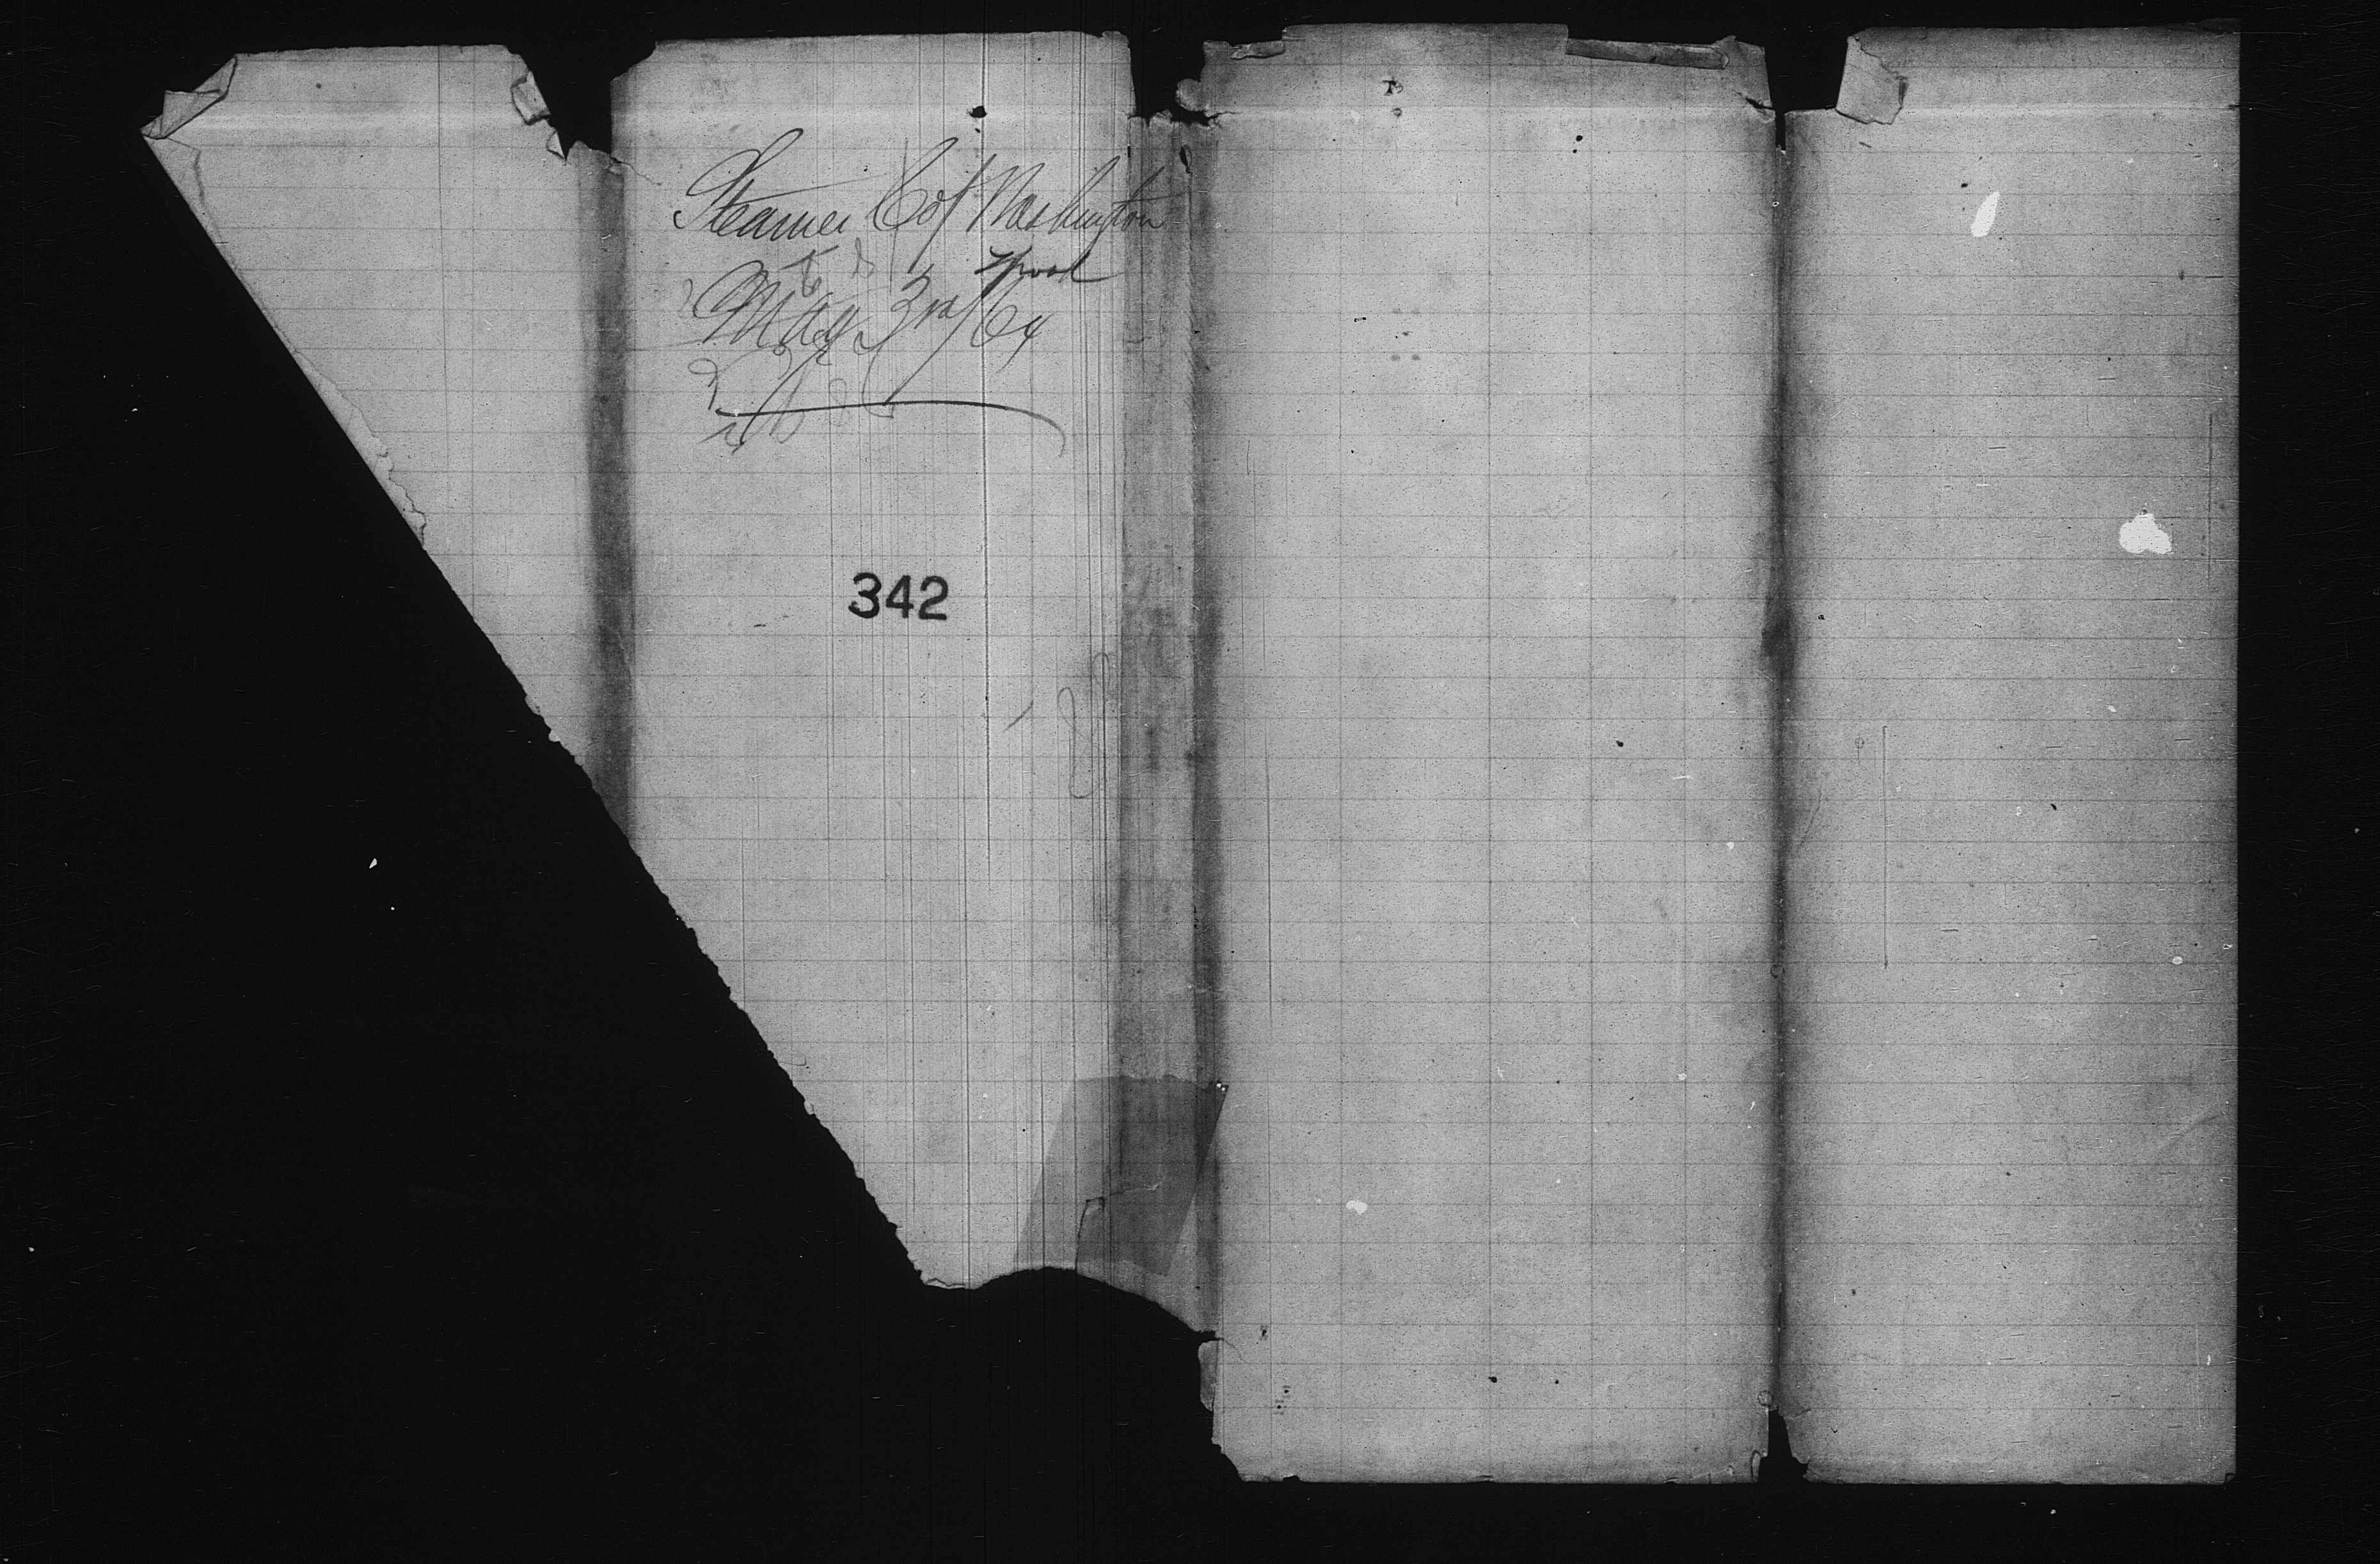 Steamer C of Washington
L'pool
May 3rd/64
342